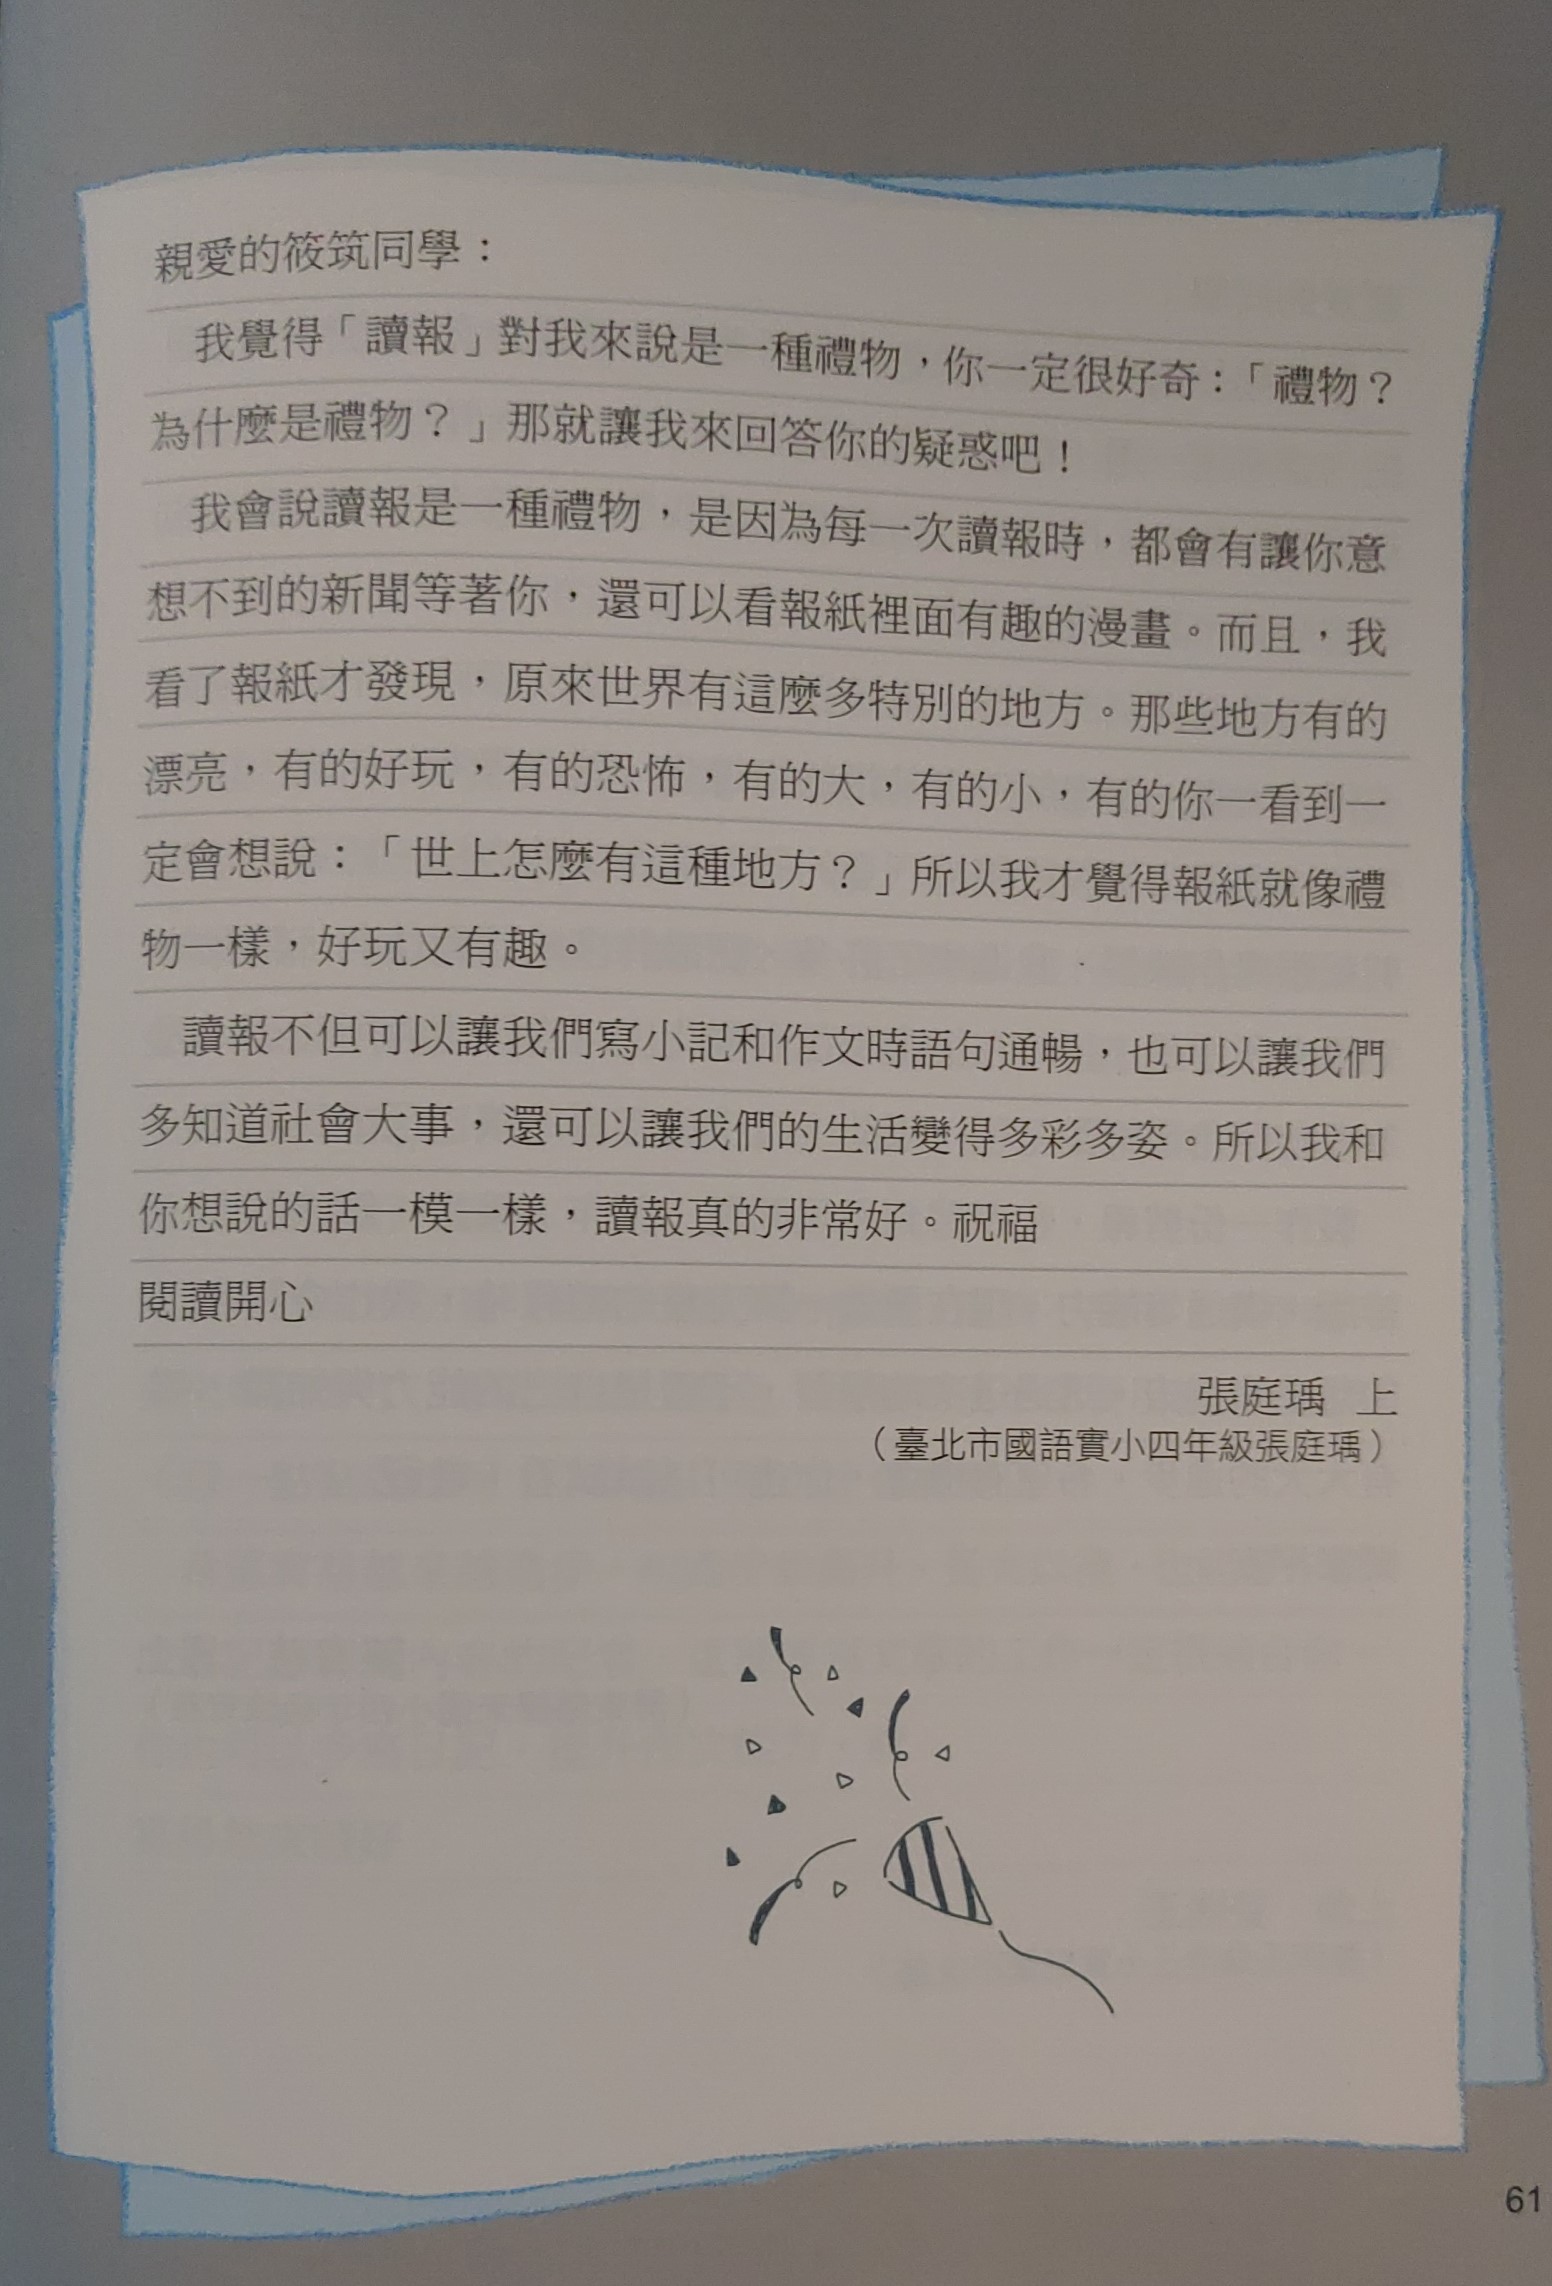 親愛的筱筑同學：
我覺得「讀報」對我來說是一種禮物，你一定很好奇：「禮物？
為什麼是禮物？」那就讓我來回答你的疑惑吧！
我會說讀報是一種禮物，是因為每一次讀報時，都會有讓你意
想不到的新聞等著你，還可以看報紙裡面有趣的漫畫。而且，我
看了報紙才發現，原來世界有這麼多特別的地方。那些地方有的
漂亮，有的好玩，有的恐怖，有的大，有的小，有的你一看到一
定會想說：「世上怎麼有這種地方？」所以我才覺得報紙就像禮
物一樣，好玩又有趣。
讀報不但可以讓我們寫小記和作文時語句通暢，也可以讓我們
多知道社會大事，還可以讓我們的生活變得多彩多姿。所以我和
你想說的話一模一樣，讀報真的非常好。祝福
閱讀開心
張庭瑀 上
（臺北市國語實小四年級張庭瑀）
61